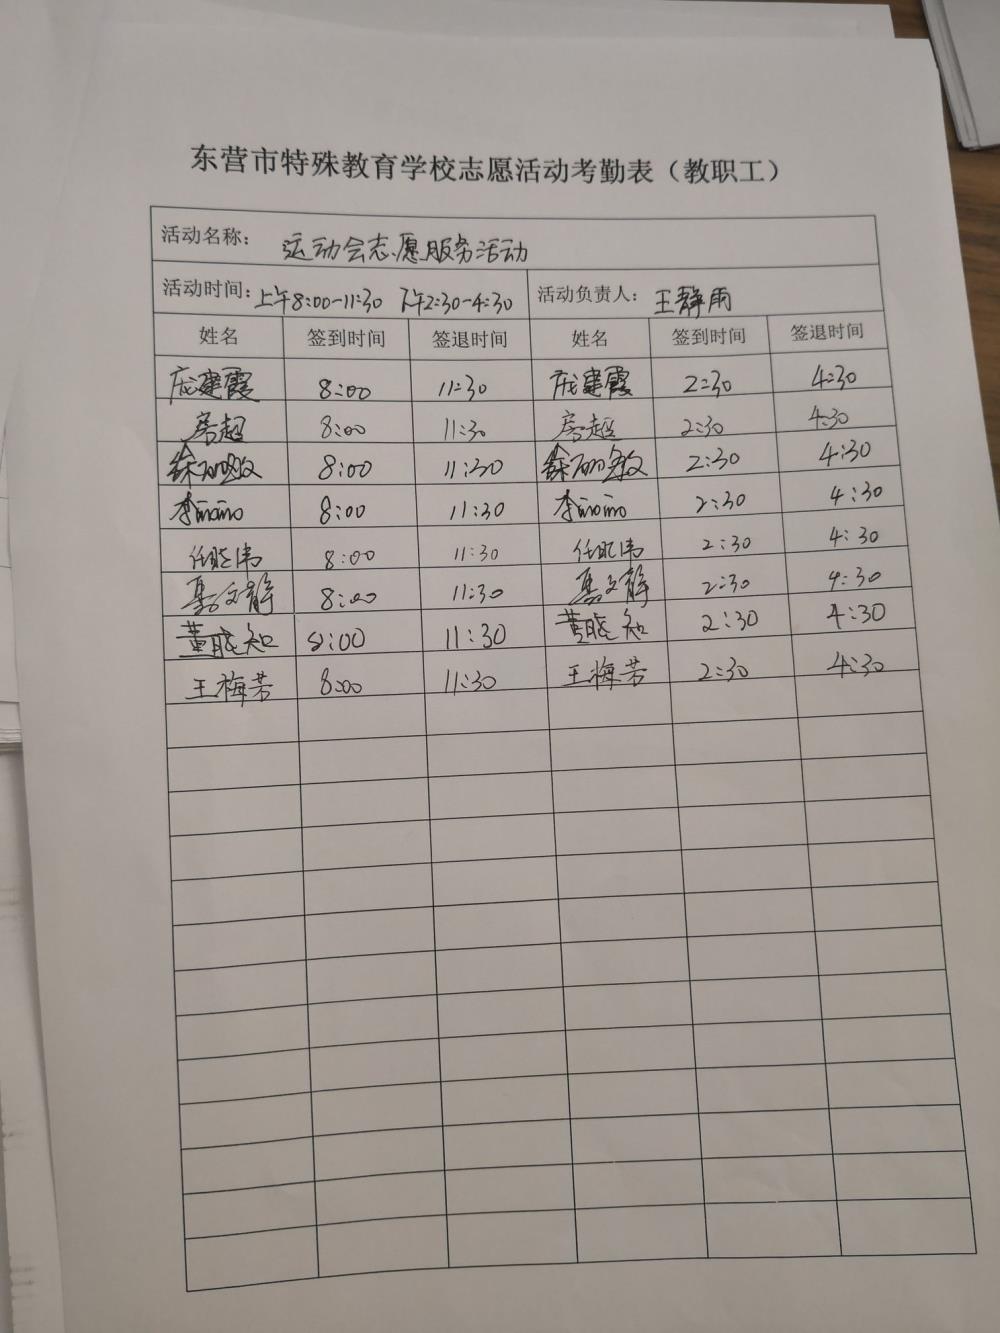 东营市特殊教育学校志愿活动考勤表（教职工）
活动名称： 运动会志愿服务活动
活动时间：上午8:00-11:30 下午2:30-4:30 活动负责人：王静雨
姓名 签到时间 签退时间 姓名 签到时间 签退时间
庞建霞 8:00 11:30 庞建霞 2:30 4:30
房超 8:00 11:30 房超 2:30 4:30
8:00 11:30 2:30 4:30
李丽丽 8:00 11:30 李丽丽 2:30 4:30
任晓伟 8:00 11:30 任晓伟 2:30 4:30
文静 8:00 11:30 文静 2:30 4:30
董晓知 8:00 11:30 董晓知 2:30 4:30
王梅芳 8:00 11:30 王梅芳 2:30 4:30